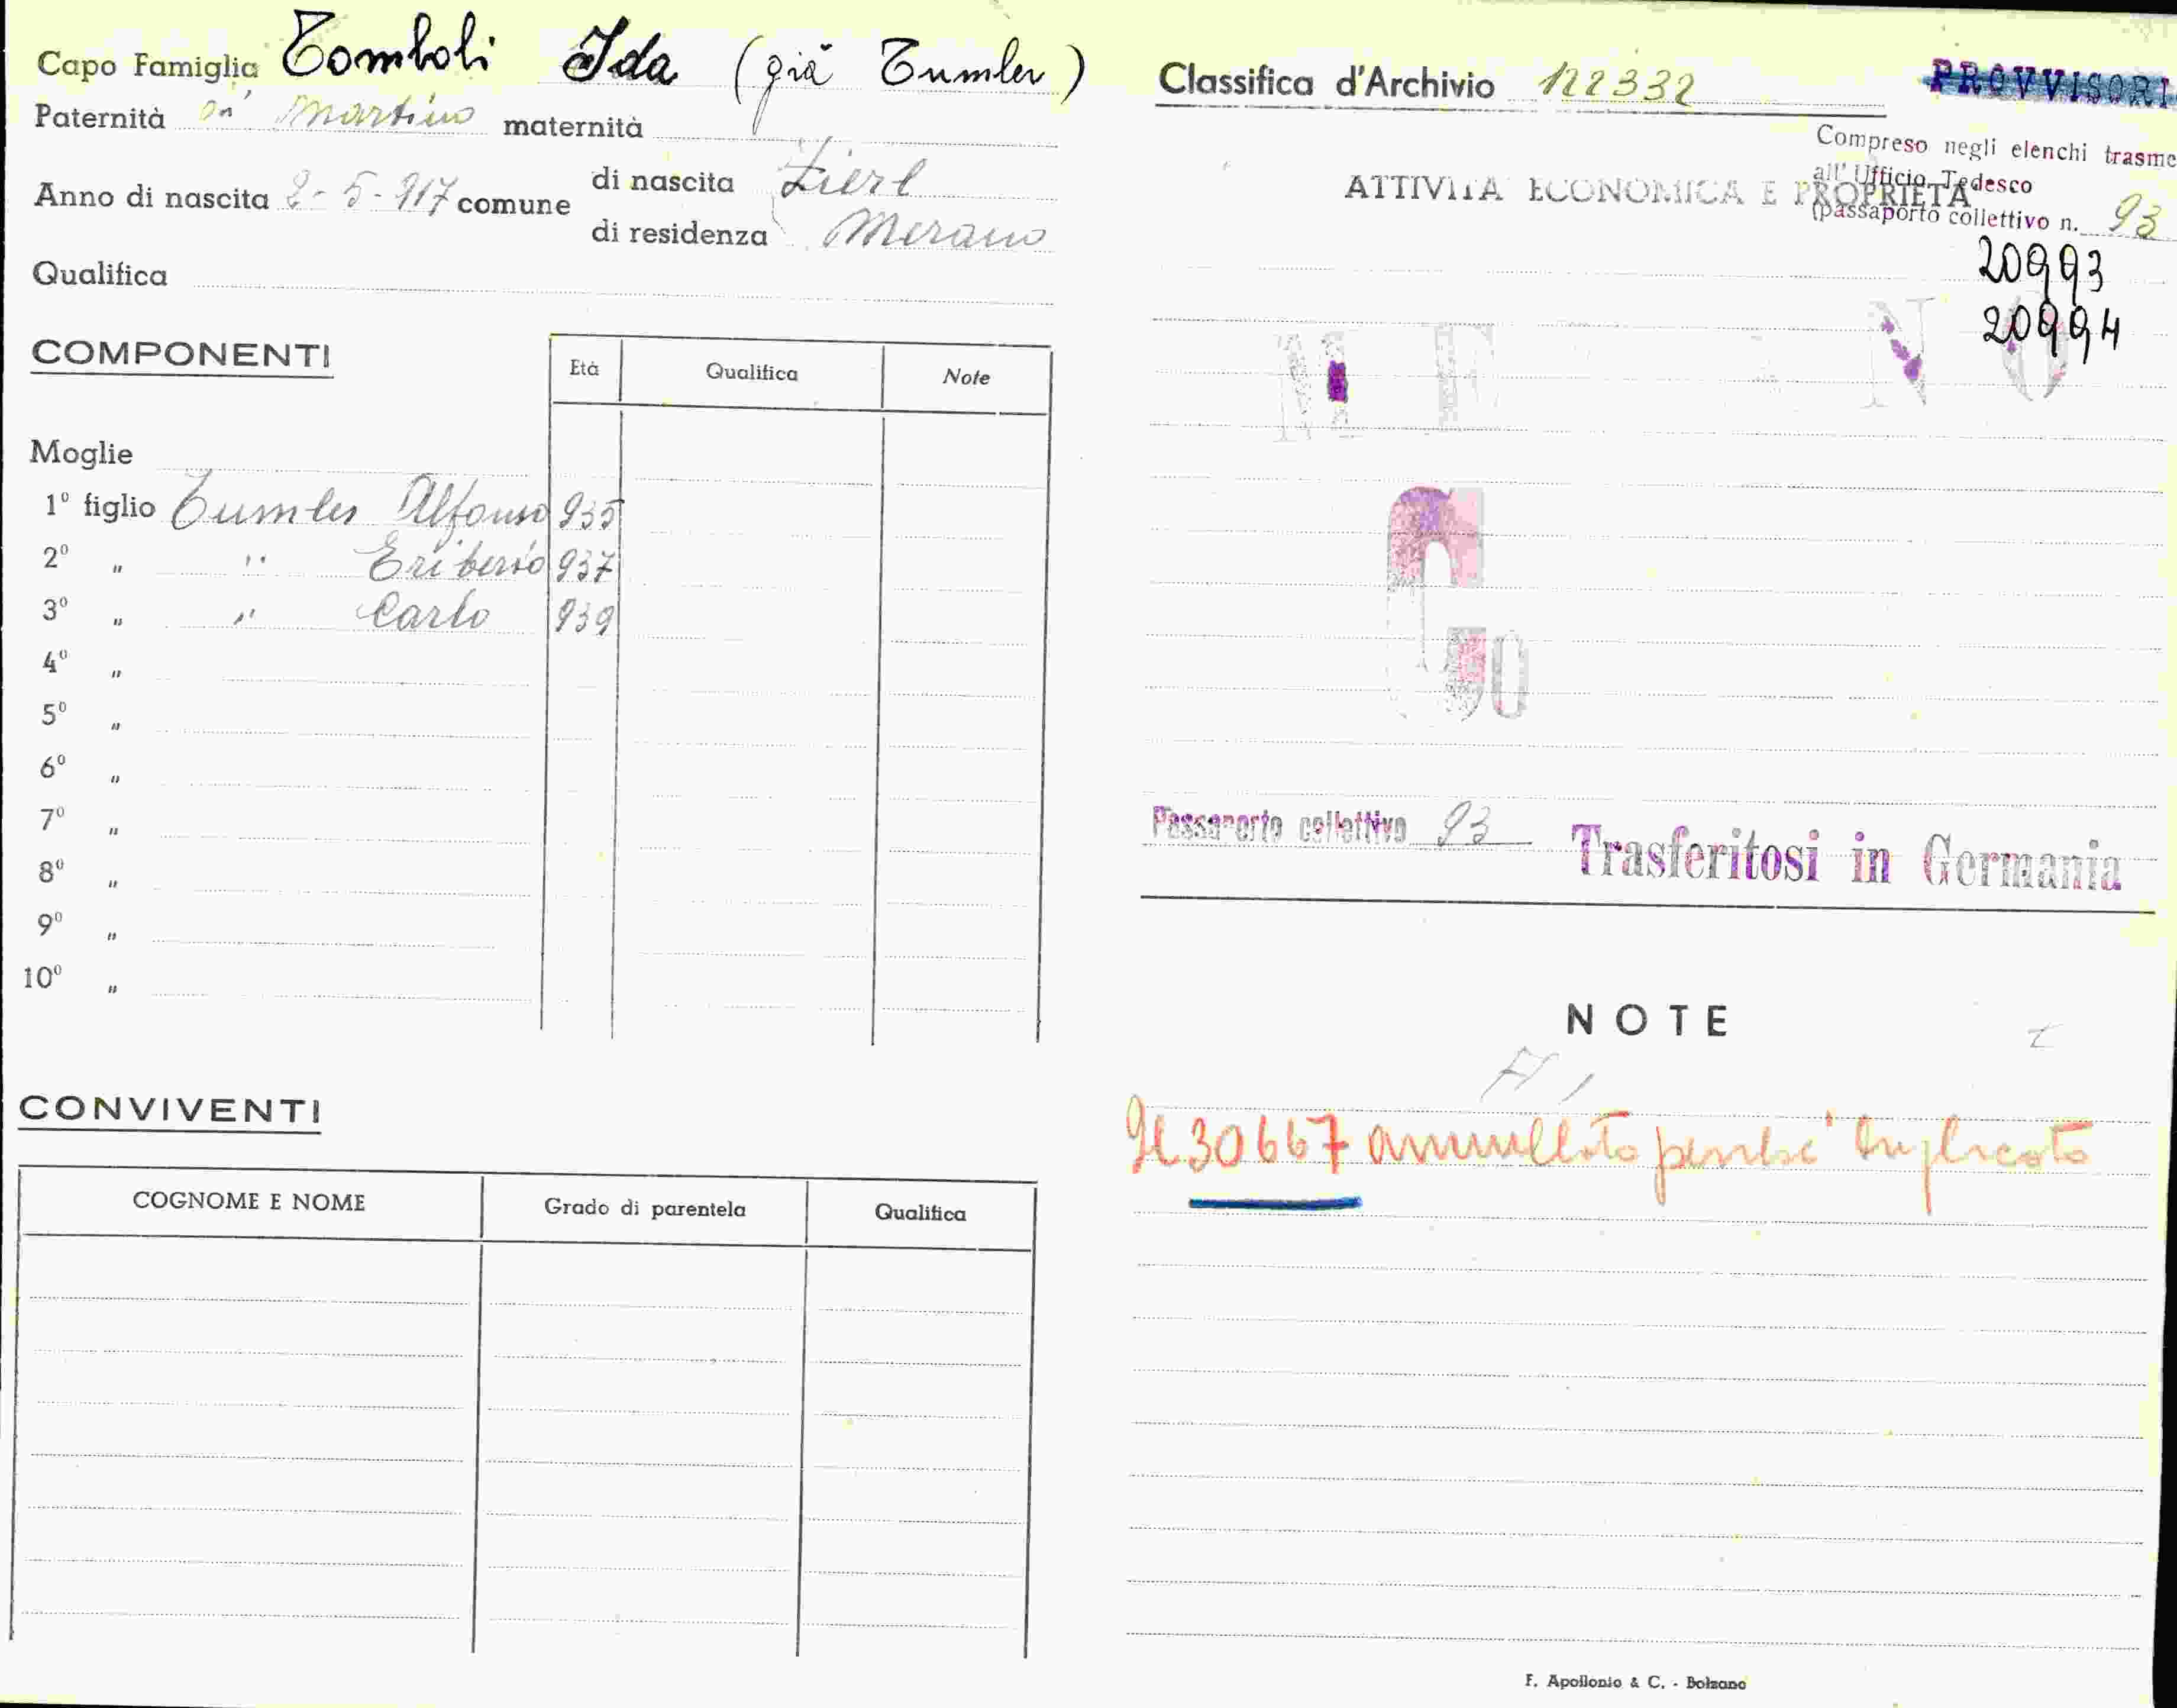 Capo Famiglia Tomboli Ida (già Tumler)
Paternità di Martino maternità
Anno di nascita 2-5-917 comune di nascita Zierl
di residenza Merano
Qualifica
COMPONENTI
Età Qualifica Note
Moglie
1º figlio Tumler Alfonso 935
2º " " Eriberto 937
3º " " Carlo 939
4º "
5º "
6º "
7º "
8º "
9º "
10º "
CONVIVENTI
COGNOME E NOME Grado di parentela Qualifica
Classifica d'Archivio 122332
PROVVISORI
Compreso negli elenchi trasme
all' Ufficio Tedesco
ATTIVITÀ ECONOMICA E PROPRIETÀ
(passaporto collettivo n. 93
20993
20994
Passaporto collettivo 93
Trasferitosi in Germania
NOTE
Il 30667 annullato perchè duplicato
F. Apollonio & C. - Bolzano